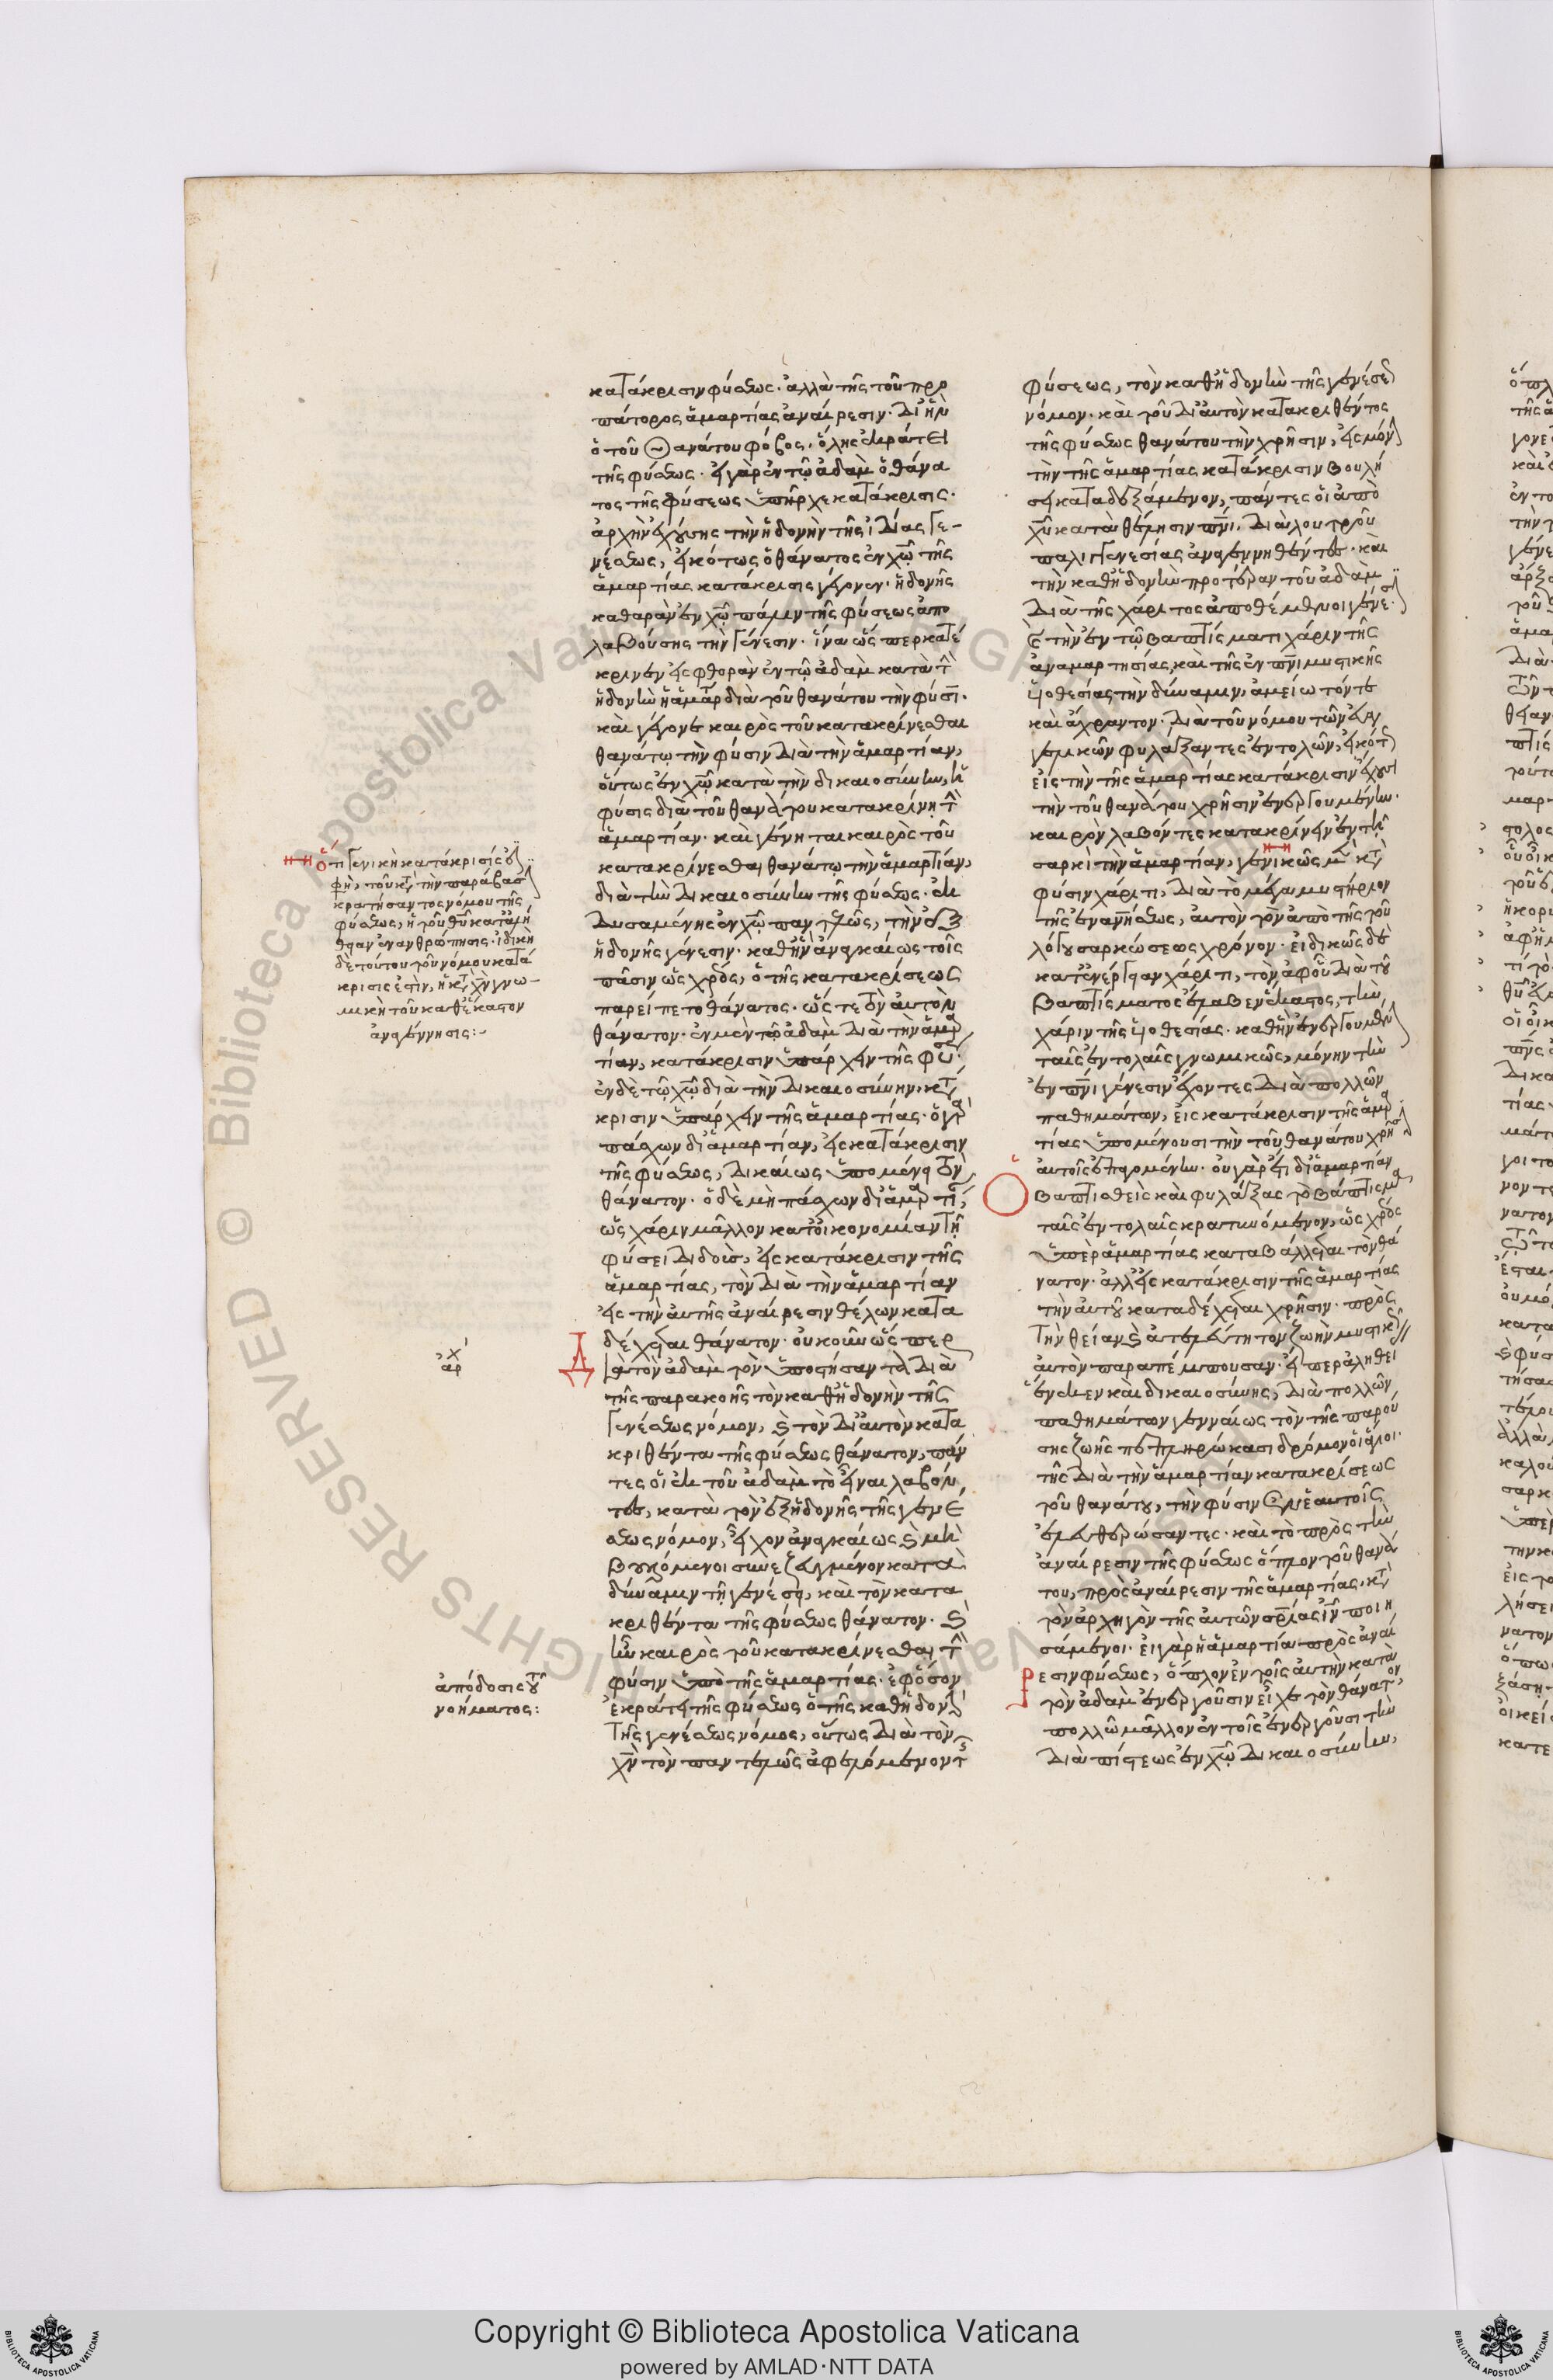 κατάκρισιν φύσεως· ἀλλὰ τῆς τοῦ προ
πάτορος ἁμαρτίας ἀναίρεσιν· δι' ἣν
ὁ τοῦ θανάτου φόβος, ὅλης ἐκράτει
τῆς φύσεως. εἰ γὰρ ἐν τῷ ἀδὰμ ὁ θάνα
τος τῆς φύσεως ὑπῆρχε κατάκρισις·
ἀρχὴν ἐχούσης τὴν ἡδονὴν τῆς ἰδίας γε-
νέσεως, εἰκότως ὁ θάνατος ἐν χῶ τῆς
ἁμαρτίας κατάκρισις γέγονεν· ἡδονῆς
καθαρὰν ἐν χῶ πάλιν τῆς φύσεως ἀπο
λαβούσης τὴν γένεσιν· ἵνα ὥσπερ κατέ
κρινεν εἰς φθορὰν ἐν τῷ ἀδὰμ κατὰ τ
ἡδονὴν ἡ ἁμαρ διὰ τοῦ θανάτου τὴν φύσι·
καὶ γέγονε καιρὸς τοῦ κατακρίνεσθαι
θανάτω τὴν φύσιν διὰ τὴν ἁμαρτίαν,
οὕτως ἐν χῶ κατὰ τὴν δικαιοσύνην, ἡ
φύσις διὰ τοῦ θανάτου κατακρίνη τ
ἁμαρτίαν· καὶ γένηται καιρὸς τοῦ
κατακρίνεσθαι θανάτω τὴν ἁμαρτίαν,
διὰ τὴν δικαιοσύνην τῆς φύσεως· ἐκ
δυσαμένης ἐν χῶ παντελῶς, τὴν ἐξ
ἡδονῆς γένεσιν· καθ' ἣν ἀναγκαίως τοῖς
πᾶσιν ὡς χρέος, ὁ τῆς κατακρίσεως
παρείπετο θάνατος· ὥστε τὸν αὐτὸν
θάνατον· ἐν μὲν τῷ ἀδὰμ διὰ τὴν ἁμαρ
τίαν, κατάκρισιν ὑπάρχειν τῆς φύσ·
ἐν δὲ τῷ χῶ διὰ τὴν δικαιοσύνην, κατ
κρισιν ὑπάρχειν τῆς ἁμαρτίας· ὁ γὰρ
πάσχων δι' ἁμαρτίαν, εἰς κατάκρισιν
τῆς φύσεως, δικαίως ὑπομένει τὸν
θάνατον· ὁ δὲ μὴ πάσχων δι' ἁμαρτί,
ὡς χάριν μᾶλλον κατ' οἰκονομίαν τῆ
φύσει διδοὺς, εἰς κατάκρισιν τῆς
ἁμαρτίας, τὸν διὰ τὴν ἁμαρτίαν
εἰς τὴν αὐτῆς ἀναίρεσιν θέλων κατα
δέχεται θάνατον· οὐκοῦν ὥσπερ
διὰ τὸν ἀδὰμ τὸν ὑποστήσαντα διὰ
τῆς παρακοῆς τὸν καθ' ἡδονὴν τῆς
γενέσεως νόμον, καὶ τὸν δι' αὐτὸν κατα
κριθέντα τῆς φύσεως θάνατον, πάν
τες οἱ ἐκ τοῦ ἀδὰμ τὸ εἶναι λαβόν
τες, κατὰ τὸν ἐξ ἡδονῆς τῆς γενέ
σεως νόμον, εἶχον ἀναγκαίως καὶ μὴ
βουλόμενοι συνεζευγμένον κατὰ
δύναμιν τῆ γενέσει, καὶ τὸν κατα
κριθέντα τῆς φύσεως θάνατον· καὶ
ἦν καιρὸς τοῦ κατακρίνεσθαι τ
φύσιν ὑπὸ τῆς ἁμαρτίας· ἐφ' ὅσον
ἐκράτει τῆς φύσεως ὁ τῆς καθ' ἡδονὴν
τῆς γενέσεως νόμος, οὕτως διὰ τὸν
χν τὸν παντελῶς ἀφελόμενον τῆς
ὅτι γενικὴ κατάκρισίς ἐστιν
φη, τοῦ κατὰ τὴν παράβασιν
κρατήσαντος νόμου τῆς
φύσεως, ἡ τοῦ θυ κατ' ἀλή
θειαν ἐνανθρώπησις· ἰδικὴ
δὲ τούτου τοῦ νόμου κατά
κρισις ἐστὶν, ἡ κατὰ χν γνω-
μικὴ τοῦ καθ' ἕκαστον
ἀναγέννησις:-
ἀρχ
ἀπόδοσις τοῦ
νοήματος:
φύσεως, τὸν καθ' ἡδονὴν τῆς γενέσεως
νόμον· καὶ τοῦ δι' αὐτὸν κατακριθέντος
τῆς φύσεως θανάτου τὴν χρῆσιν, εἰς μόνην
τὴν τῆς ἁμαρτίας κατάκρισιν βουλή
σει καταδεξάμενον, πάντες οἱ ἀπὸ
χυ κατὰ θέλησιν πνι, διὰ λουτροῦ
παλιγγενεσίας ἀναγεννηθέντες· καὶ
τὴν καθ' ἡδονὴν προτέραν τοῦ ἀδὰμ
διὰ τῆς χάριτος ἀποθέμενοι γένεσιν·
καὶ τὴν ἐν τῷ βαπτίσματι χάριν τῆς
ἀναμαρτησίας, καὶ τῆς ἐν πνι μυστικῆς
υἱοθεσίας τὴν δύναμιν, ἀμείωτόν τε
καὶ ἄχραντον· διὰ τοῦ νόμου τῶν εὐαγ
γελικῶν φυλάξαντες ἐντολῶν, εἰκότως
εἰς τὴν τῆς ἁμαρτίας κατάκρισιν ἔχουσι
τὴν τοῦ θανάτου χρῆσιν ἐνεργουμένην·
καιρὸν λαβόντες κατακρίνειν ἐν τῆ
σαρκὶ τὴν ἁμαρτίαν, γενικῶς μὲν κατὰ
φύσιν χάριτι, διὰ τὸ μέγα μυστήριον
τῆς ἐναν́ησεως, αὐτὸν τὸν ἀπὸ τῆς τοῦ
λόγου σαρκώσεως χρόνον· εἰδικῶς δὲ
κατ' ἐνέργειαν χάριτι, τὸν ἀφ' οὗ διὰ τοῦ
βαπτίσματος ἔλαβεν ἕκαστος, τὴν
χάριν τῆς υἱοθεσίας· καθ' ἣν ἐνεργουμένην
ταῖς ἐντολαῖς γνωμικῶς, μόνην τὴν
ἐν πνι γένεσιν ἔχοντες διὰ πολλῶν
παθημάτων, εἰς κατάκρισιν τῆς ἁμαρ
τίας ὑπομένουσι τὴν τοῦ θανάτου χρῆσιν
αὐτοῖς ἐπαγομένην· οὐ γὰρ ἔτι δι' ἁμαρτίαν ὁ
βαπτισθεὶς καὶ φυλάξας τὸ βάπτισμα
ταῖς ἐντολαῖς κρατυνόμενον, ὡς χρέος
ὑπὲρ ἁμαρτίας καταβάλλεται τὸν θά
νατον· ἀλλ' εἰς κατάκρισιν τῆς ἁμαρτίας
τὴν αὐτοῦ καταδέχεται χρῆσιν· πρὸς
τὴν θείαν καὶ ἀτελεύτητον ζωὴν μυστικῶς
αὐτὸν παραπέμπουσαν· εἴπερ ἀληθεί
ας ἕνεκεν καὶ δικαιοσύνης, διὰ πολλῶν
παθημάτων γενναίως τὸν τῆς παρού
σης ζωῆς πεπληρώκασι δρόμον οἱ ἅγιοι·
τῆς διὰ τὴν ἁμαρτίαν κατακρίσεως
τοῦ θανάτου, τὴν φύσιν ἐν ἑαυτοῖς
ἐλευθερώσαντες· καὶ τὸ πρὸς τὴν
ἀναίρεσιν τῆς φύσεως ὅπλον τοῦ θανά
του, πρὸς ἀναίρεσιν τῆς ἁμαρτίας, κατὰ
τὸν ἀρχηγὸν τῆς αὐτῶν σριας ιν ποιη
σάμενοι· εἰ γὰρ ἡ ἁμαρτία πρὸς ἀναί
ρεσιν φύσεως, ὅπλον ἐν τοῖς αὐτὴν κατὰ
τὸν ἀδὰμ ἐνεργοῦσιν εἶχε τὸν θάνατον,
πολλῷ μᾶλλον ἐν τοῖς ἐνεργοῦσι τὴν
διὰ πίστεως ἐν χῶ δικαιοσύνην,
© Biblioteca Apostolica Vaticana ALL RIGHTS RESERVED
Copyright © Biblioteca Apostolica Vaticana
powered by AMLAD·NTT DATA
BIBLIOTECA APOSTOLICA VATICANA
BIBLIOTECA APOSTOLICA VATICANA